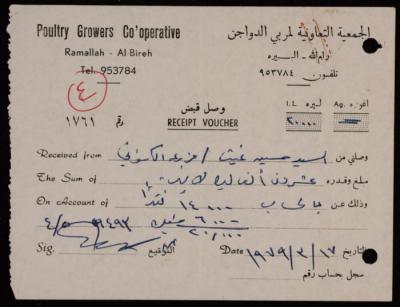 Poultry Growers Co'operative
Ramallah - Al-Bireh
Tel. 953784
الجمعية التعاونية لمربي الدواجن
رام الله - البيره
تلفون ٩٥٣٧٨٤
٤
وصل قبض
RECEIPT VOUCHER
رقم ١٧٦١
I.L. ليره
Ag. اغوره
٢٠٠٠٠
Received from السيد حسين غيث / مزرعة وصلني من
The Sum of عشرون ألف ليرة مبلغ وقدره
On Account of بالحساب ١٤٠٠٠ نقدا وذلك عن
٦٠٠٠
٢٠,٠٠٠
Sig. التوقيع
Date ١٩٧٩/٣/١٧ التاريخ
سجل بحساب رقم